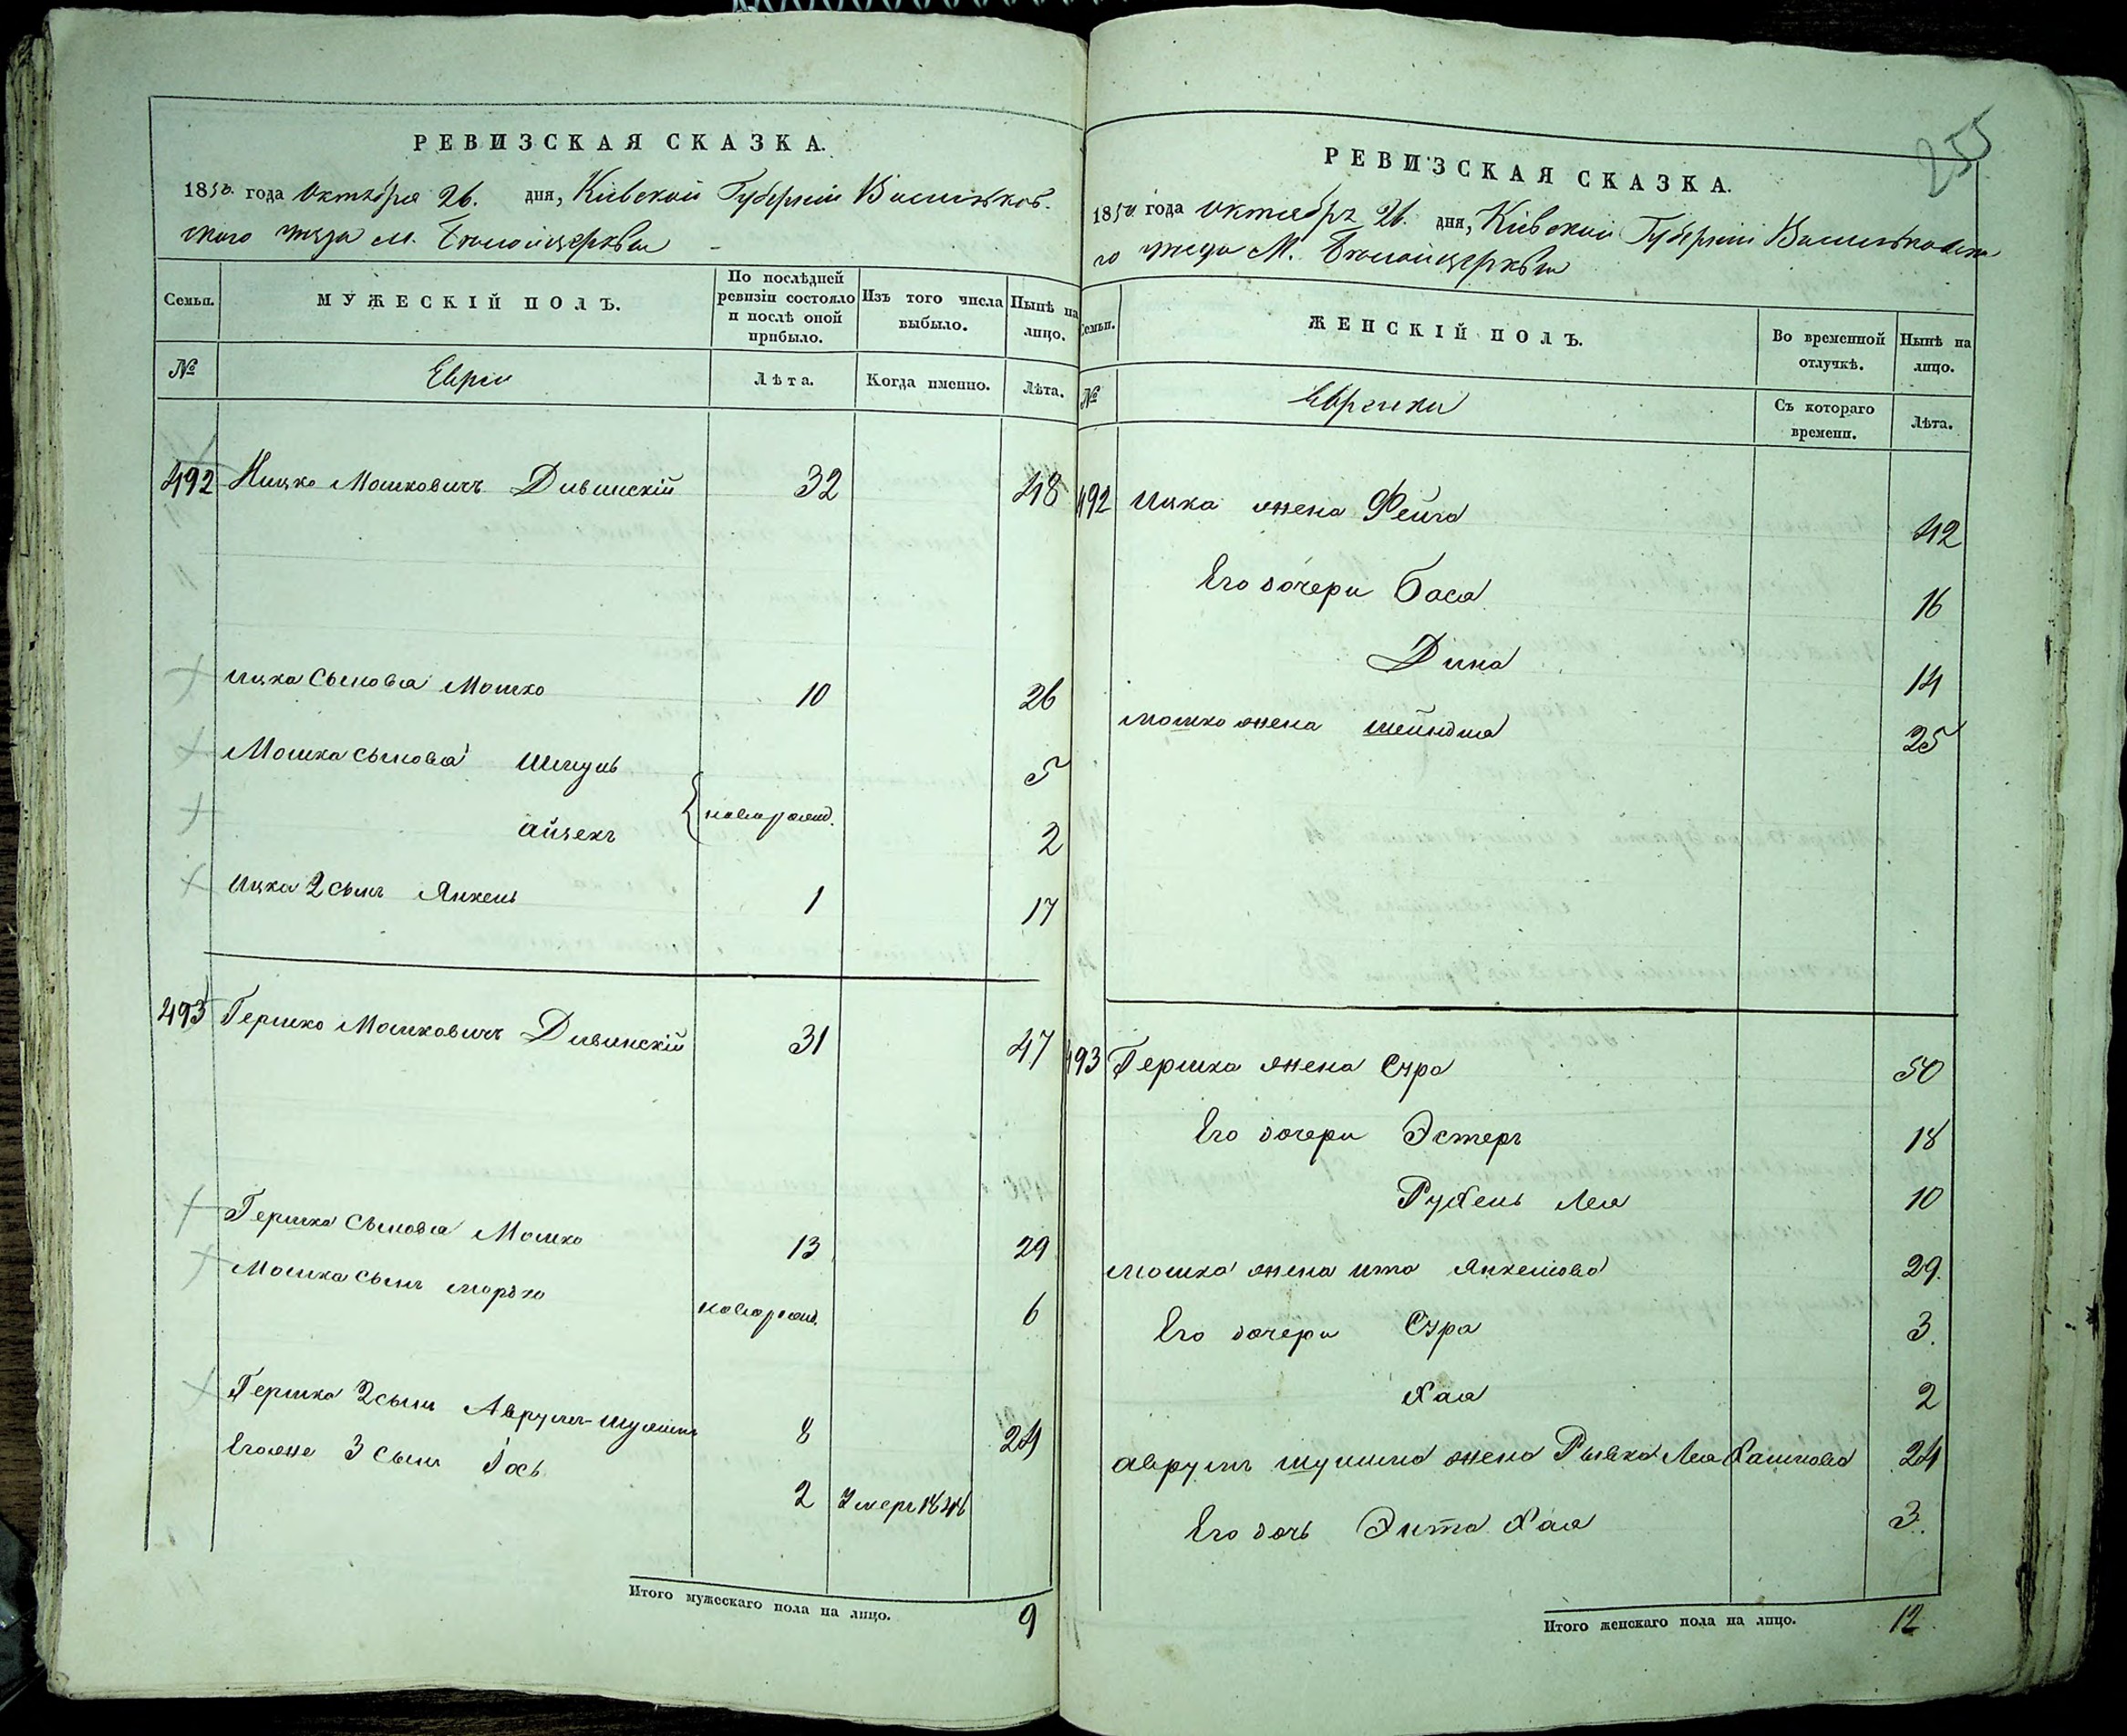 РЕВИЗСКАЯ СКАЗКА.
1850 года Октября 26. дня, Кіевской Губерніи Васильков-
скаго уѣзда М. Бѣлойцеркви
Семьи.
МУЖЕСКІЙ ПОЛЪ.
По послѣдней ревизіи состояло и послѣ оной прибыло.
Изъ того числа выбыло.
Нынѣ на лицо.
№
Евреи
Лѣта.
Когда именно.
Лѣта.
492 Ицко Мошковичъ Дивинскій 32 48
Ицка сыновья Мошко 10 26
Мошка сыновья Шмуль 5
новорожд.
Айзекъ 2
Ицка 2 сынъ Янкель 1 17
493 Гершко Мошковичъ Дивинскій 31 47
Гершка сыновья Мошко 13 29
Мошка сынъ новорожд. 6
Гершка 2 сынъ Аврумъ- 8 24
Егоже 3 сынъ 2 Умеръ 1848
Итого мужескаго пола на лицо. 9
255
РЕВИЗСКАЯ СКАЗКА.
1850 года Октября 26. дня, Кіевской Губерніи Васильковска-
го уѣзда М. Бѣлойцеркви
Семьи.
ЖЕНСКІЙ ПОЛЪ.
Во временной отлучкѣ.
Нынѣ на лицо.
№
Еврейки
Съ котораго времени.
Лѣта.
492 Ицка жена Фейга 42
Его дочери Бася 16
Дина 14
Мошка жена Шейндля 25
493 Гершка жена Сура 50
Его дочери Эстеръ 18
Лея 10
Мошка жена Ита Янкелова 29.
Его дочери Сура 3.
Хая 2
Аврумъ жена Рывка Лея Хаимова 24
Его дочь Хая 3.
Итого женскаго пола на лицо. 12.